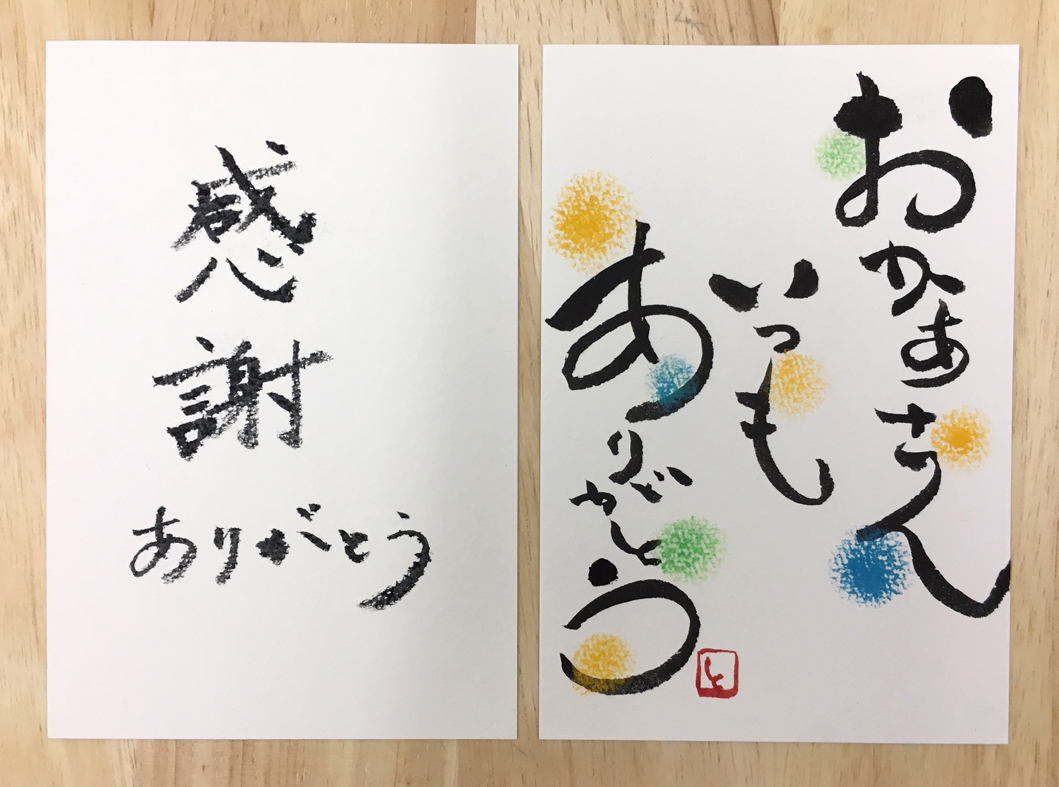 感
謝
ありがとう
おかあさん
いつも
ありがとう
と